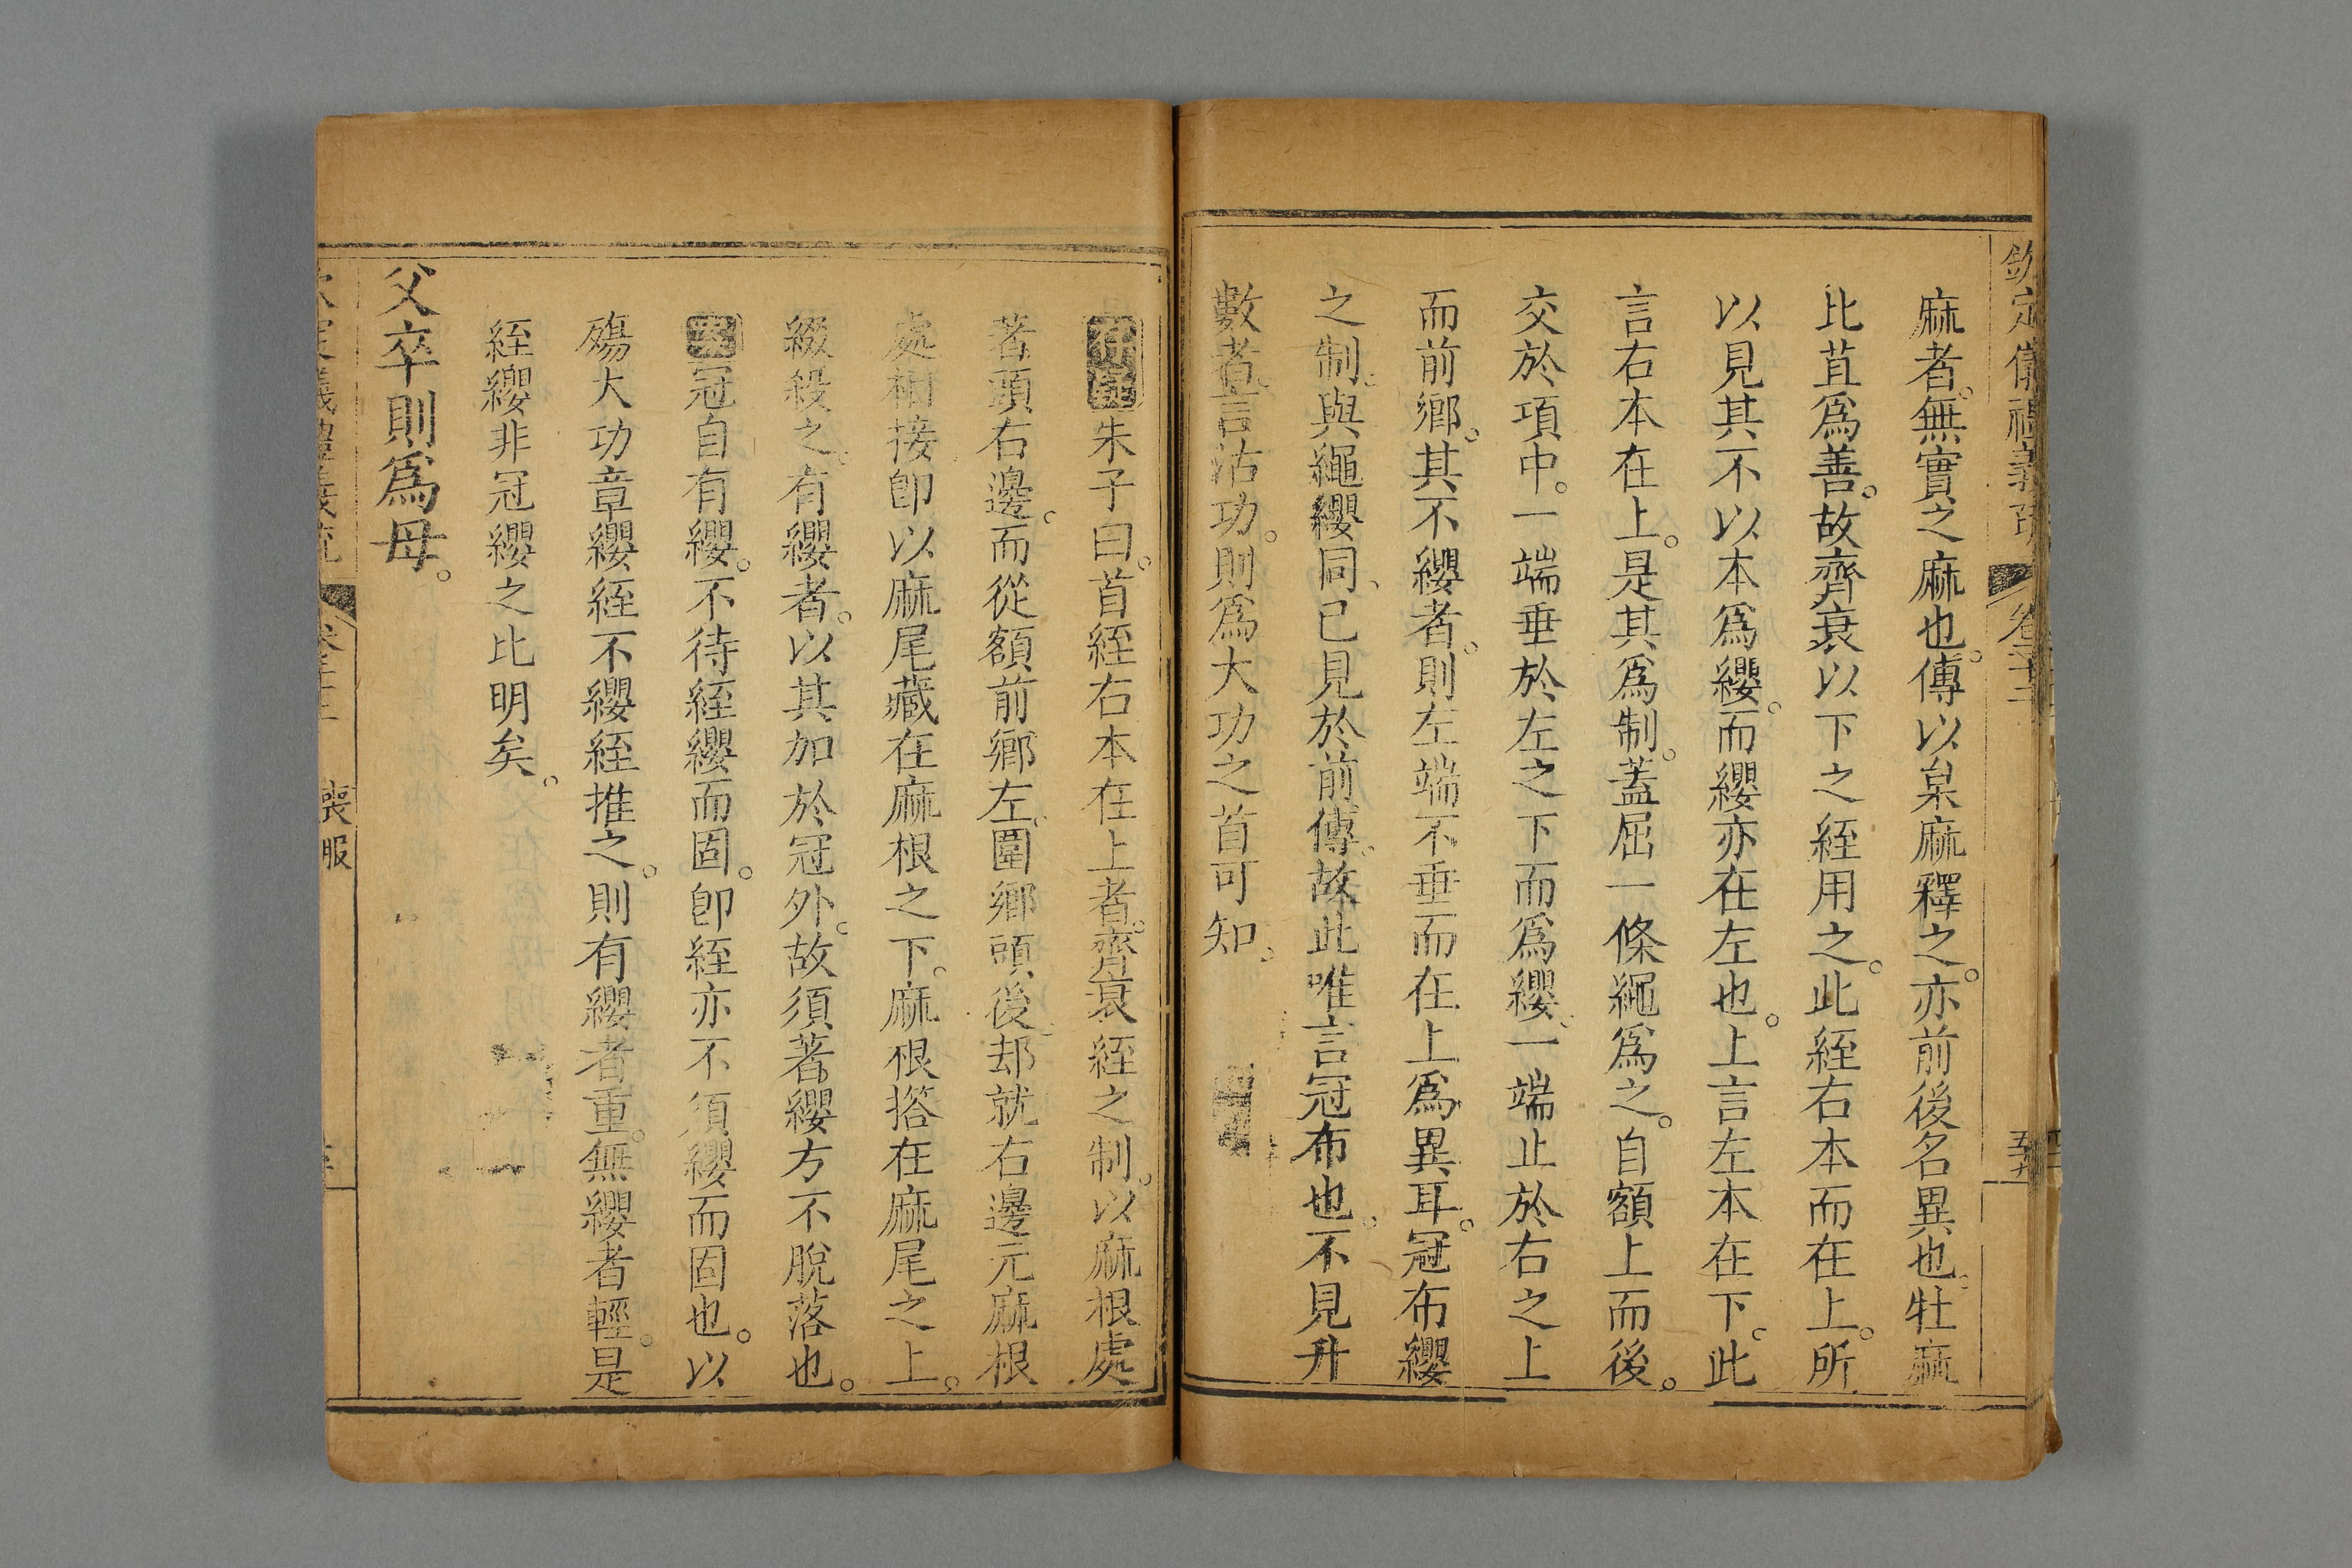 欽定儀禮義疏 卷二十二
麻者。無實之麻也。傳以枲麻釋之。亦前後名異也。牡麻
比苴爲善。故齊衰以下之絰用之。此絰右本而在上。所
以見其不以本爲纓。而纓亦在左也。上言左本在下。此
言右本在上。是其爲制。蓋屈一條繩爲之。自額上而後。
交於項中。一端垂於左之下而爲纓、一端止於右之上
而前鄉。其不纓者。則左端不垂而在上爲異耳。冠布纓
之制。與繩纓同、已見於前傳。故此唯言冠布也。不見升
數者。言沽功。則爲大功之首可知。
朱子曰。首絰右本在上者。齊衰絰之制。以麻根處
著頭右邊。而從額前鄉左。圍鄉頭後、却就右邊元麻根
處相接卽以麻尾藏在麻根之下。麻根搭在麻尾之上。
綴殺之。有纓者。以其加於冠外。故須著纓方不脫落也。
案冠自有纓。不待絰纓而固。卽絰亦不須纓而固也。以
殤大功章纓絰不纓絰推之。則有纓者重。無纓者輕。是
絰纓非冠纓之比明矣。
父卒則爲母。
喪服